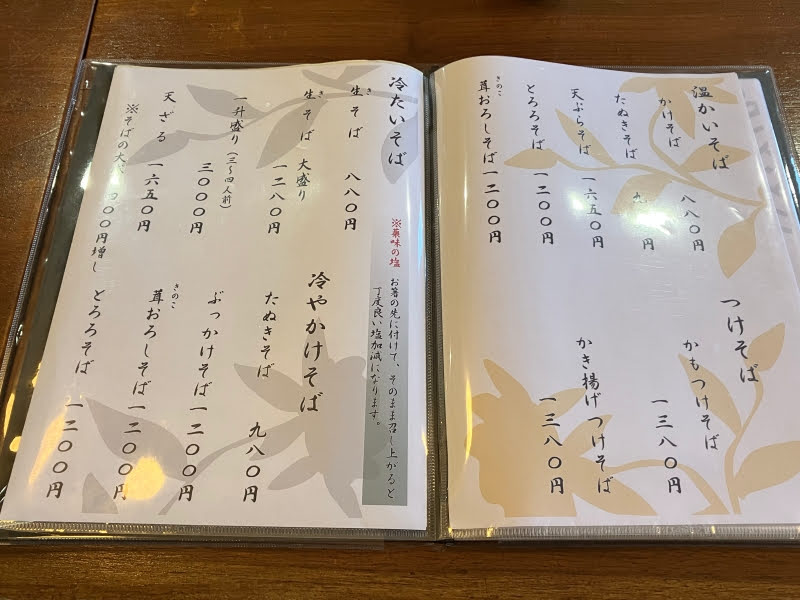 温かいそば
かけそば 八八〇円
たぬきそば 九 円
天ぷらそば 一六五〇円
とろろそば 一二〇〇円
きのこ
茸おろしそば 一二〇〇円
つけそば
かもつけそば
一三八〇円
かき揚げつけそば
一三八〇円
冷たいそば
き
生そば 八八〇円
き
生そば 大盛り
一二八〇円
一升盛り（三〜四人前）
三〇〇〇円
天ざる 一六五〇円
※そばの大 四〇〇円増し
※薬味の塩 お箸の先に付けて、そのまま召し上がると
丁度良い塩加減になります。
冷やかけそば
たぬきそば 九八〇円
ぶっかけそば 一二〇〇円
きのこ
茸おろしそば 一二〇〇円
とろろそば 一二〇〇円